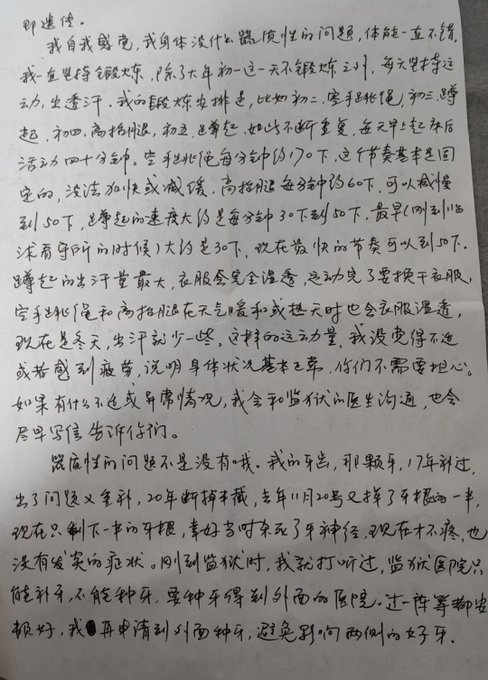 即遗传。
我自我感觉,我身体没什么器质性的问题,体能一直不错,
我一直坚持锻炼,除了大年初一这一天不锻炼之外,每天坚持运
动,出透汗。我的锻炼安排是,比如初二,空手跳绳,初三,蹲
起,初四,高抬腿,初五,蹲起,如此不断重复,每天早上起床后
活动四十分钟。空手跳绳每分钟约170下,这个节奏基本是固
定的,没法加快或减缓,高抬腿每分钟约60下,可以减慢
到50下,蹲起的速度大约是每分钟30下到50下,最早(刚到临
沭看守所的时候)大约是30下,现在最快的节奏可以到50下。
蹲起的出汗量最大,衣服会完全湿透,运动完了要换干衣服,
空手跳绳和高抬腿在天气暖和或热天时也会衣服湿透,
现在是冬天,出汗就少一些。这样的运动量,我没觉得不适
或者感到疲劳,说明身体状况基本正常,你们不需要担心。
如果有什么不适或异常情况,我会和监狱的医生沟通,也会
尽早写信告诉你们。
器质性的问题不是没有哦。我的牙齿,那颗牙,17年补过,
出了问题又重补,20年断掉半截,去年11月20号又掉了牙根的一半,
现在只剩下一半的牙根,幸好当时杀死了牙神经,现在才不疼,也
没有发炎的症状。刚到监狱时,我就打听过,监狱医院只
能补牙,不能种牙,要种牙得到外面的医院。过一阵等都安
顿好,我再申请到外面种牙,避免影响两侧的好牙。